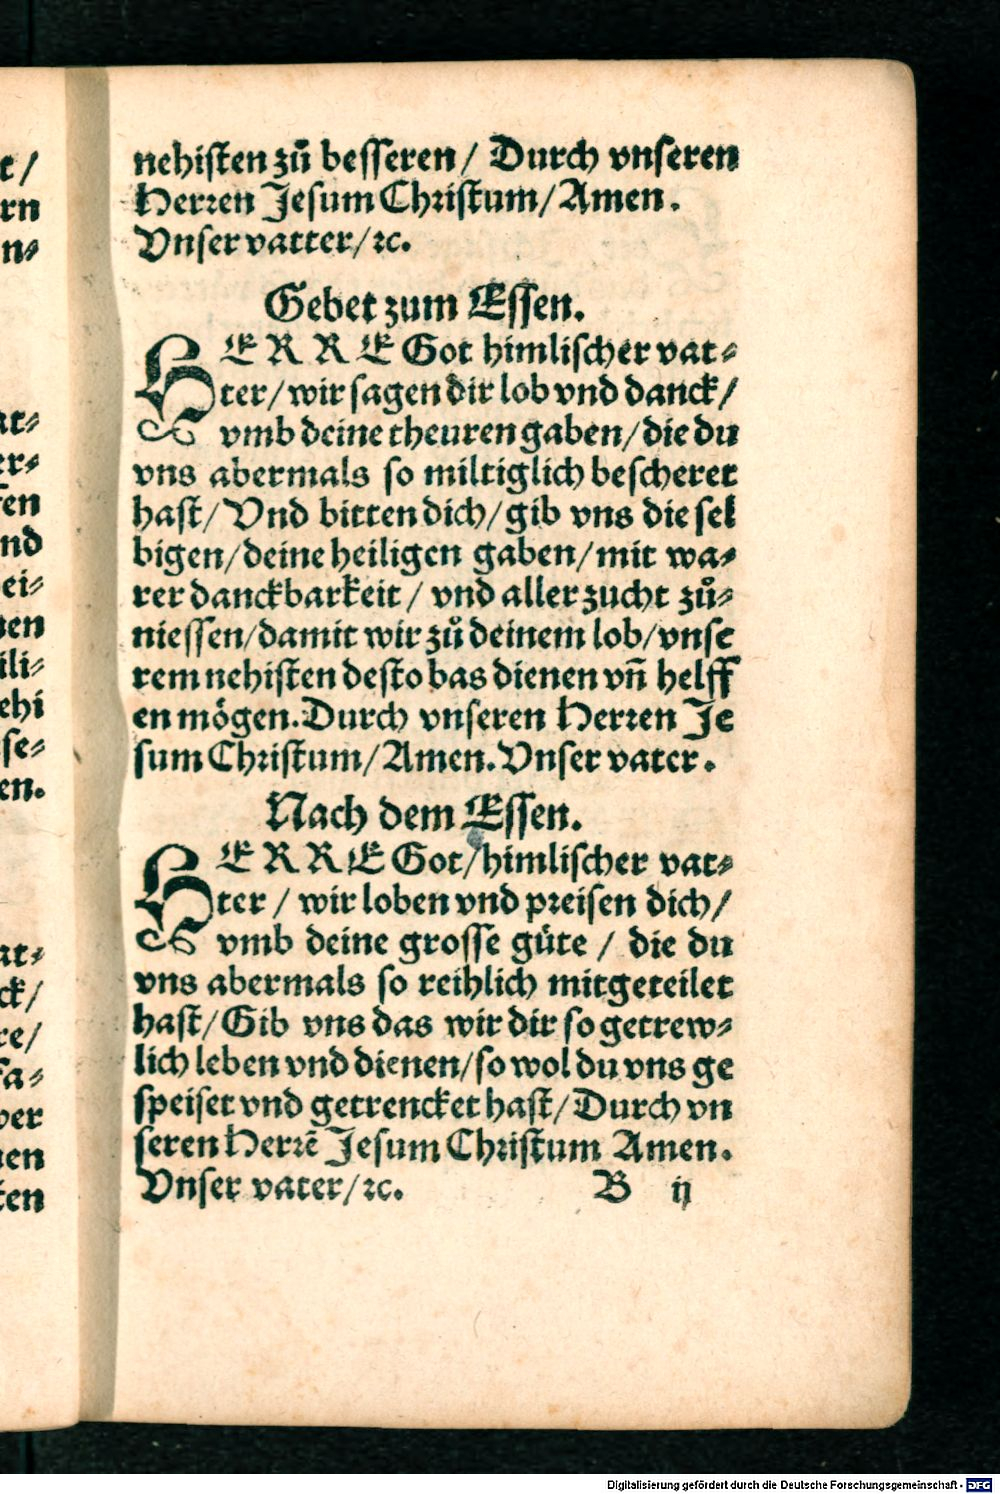 nehisten zů besseren / Durch vnseren
Herren Jesum Christum / Amen.
Vnser vatter / ꝛc.
Gebet zum Essen.
HERRE Got himlischer vat⸗
ter / wir sagen dir lob vnd danck /
vmb deine theuren gaben / die du
vns abermals so miltiglich bescheret
hast / Vnd bitten dich / gib vns die sel
bigen / deine heiligen gaben / mit wa⸗
rer danckbarkeit / vnd aller zucht zů⸗
niessen / damit wir zů deinem lob / vnse
rem nehisten desto bas dienen vñ helff
en mögen. Durch vnseren Herren Je
sum Christum / Amen. Vnser vater.
Nach dem Essen.
HERRE Got / himlischer vat⸗
ter / wir loben vnd preisen dich /
vmb deine grosse güte / die du
vns abermals so reihlich mitgeteilet
hast / Gib vns das wir dir so getrew⸗
lich leben vnd dienen / so wol du vns ge
speiset vnd getrencket hast / Durch vn
seren Herrē Jesum Christum Amen.
Vnser vater / ꝛc. B ij
Digitalisierung gefördert durch die Deutsche Forschungsgemeinschaft - DFG